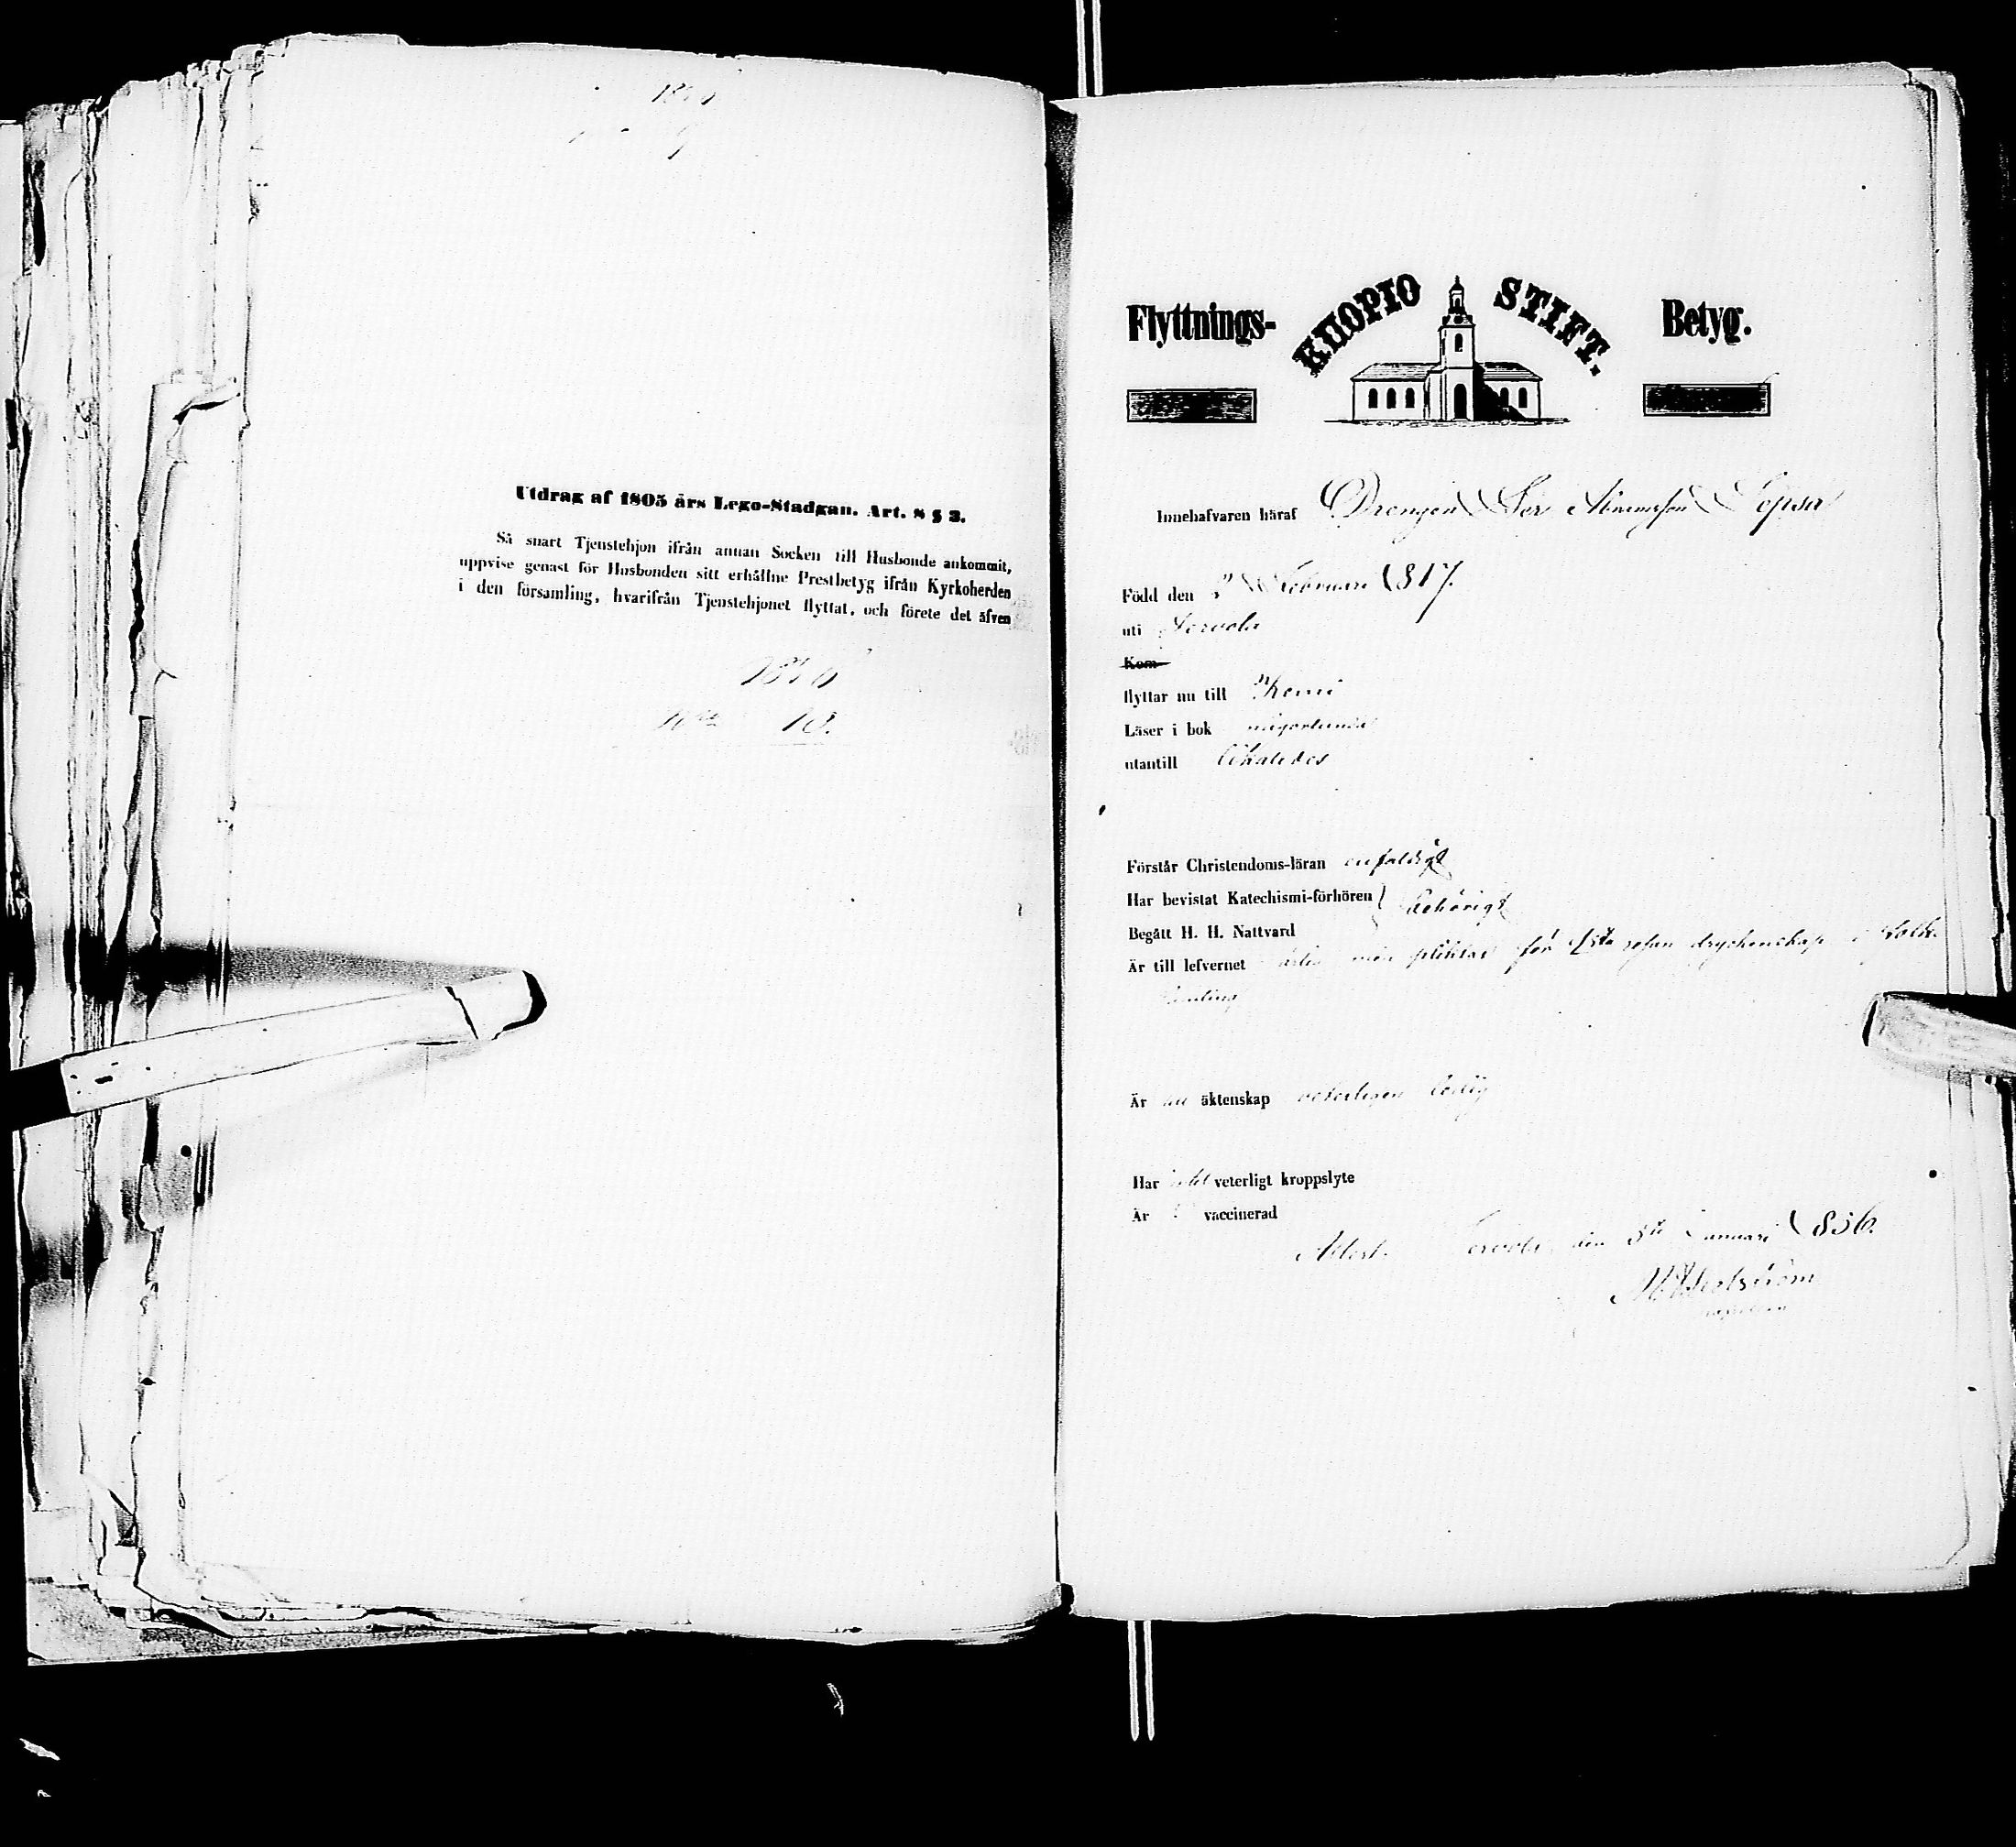 Utdrag af 1805 års Lego-Stadgan. Art. 8 § 3.
Så snart Tjenstehjon ifrån annan Socken till Husbonde ankommit,
uppvise genast för Husbonden sitt erhållne Prestbetyg ifrån Kyrkoherden
i den församling, hvarifrån Tjenstehjonet flyttat, och förete det äfven
10.
Flyttnings- KUOPIO STIFT. Betyg.
Innehafvaren häraf Drengen
Född den 2 Februari 1817.
uti Tervola
Kom
flyttar nu till Kemi
Läser i bok någorlunda
utantill
Förstår Christendoms-läran enfaldigt
Har bevistat Katechismi-förhören } behörigt
Begått H. H. Nattvard
Är till lefvernet men pliktat för 1sta resan dryckenskap i folk-
samling
Är till äktenskap veterligen ledig
Har intet veterligt kroppslyte
Är vaccinerad
Attest. Tervola den 5te Januari 1856.